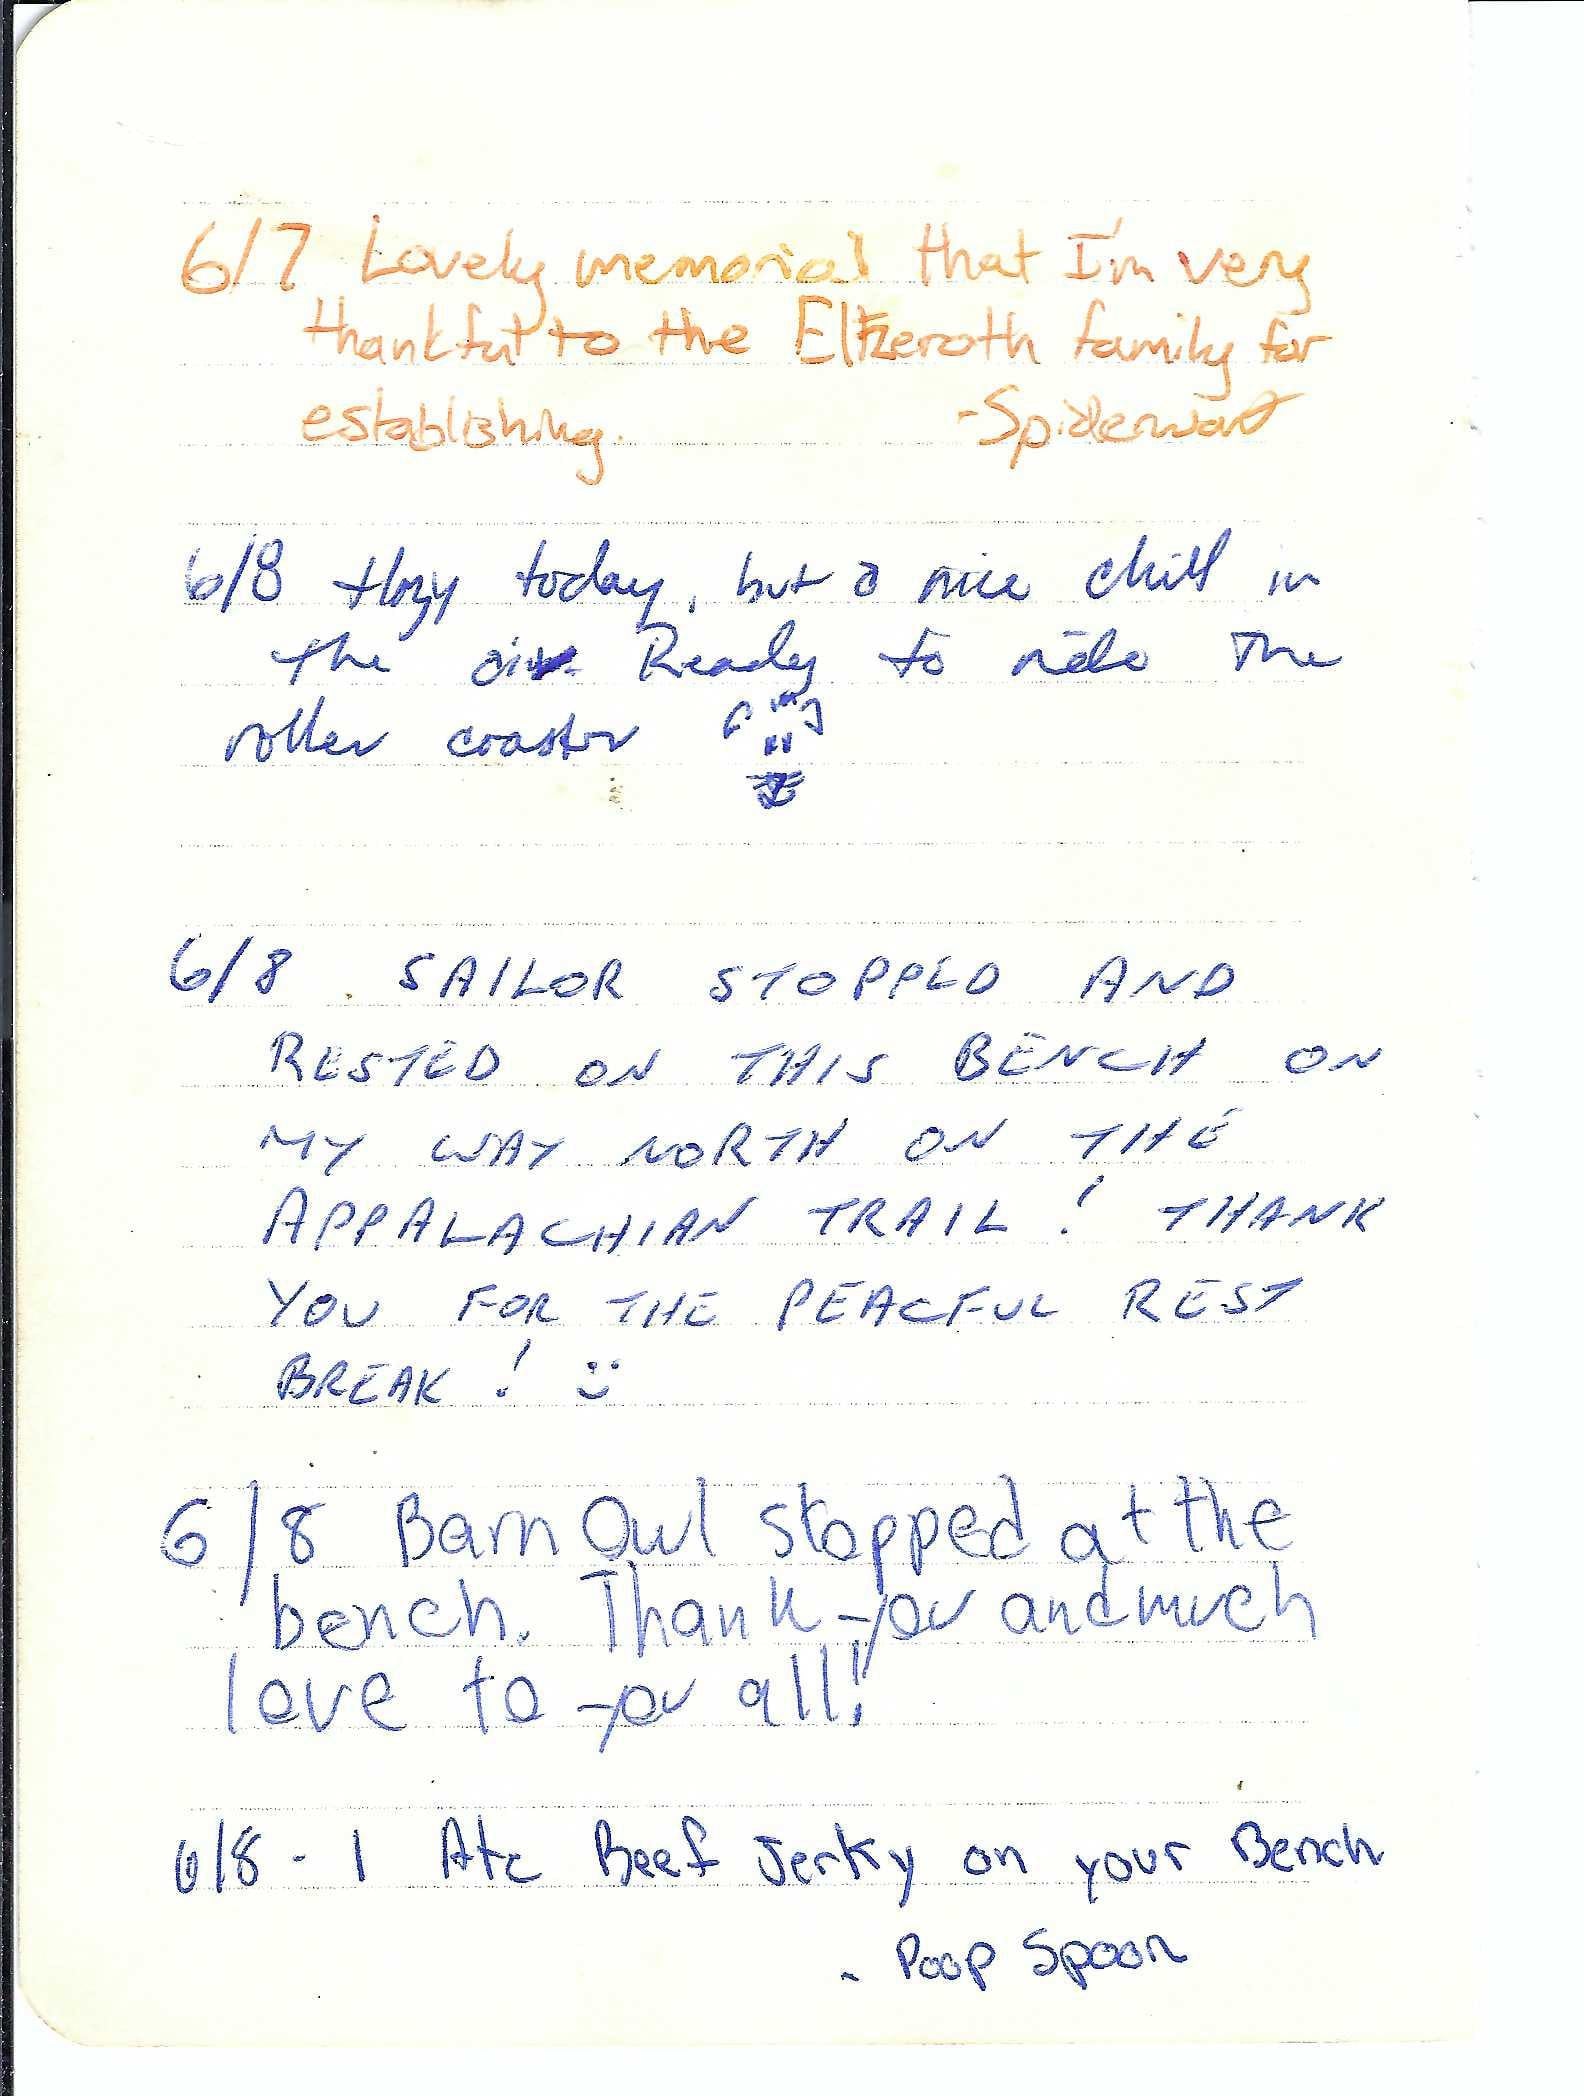 6/7 Lovely memorial that I'm very
thankful to the Eltzeroth family for
establishing.
-Spiderwort
6/8 Hazy today, but a nice chill in
the air. Ready to ride the
roller coaster
6/8 SAILOR STOPPED AND
RESTED ON THIS BENCH ON
MY WAY NORTH ON THE
APPALACHIAN TRAIL! THANK
YOU FOR THE PEACEFUL REST
BREAK! :)
6/8 Barn Owl stopped at the
bench. Thank you and much
love to you all!
6/8 - I Ate Beef Jerky on your Bench
- Poop Spoon